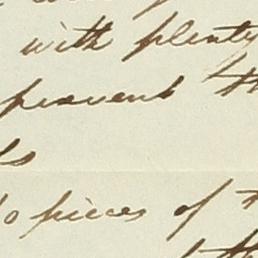 with plenty
prevent th
ds
to pieces of t